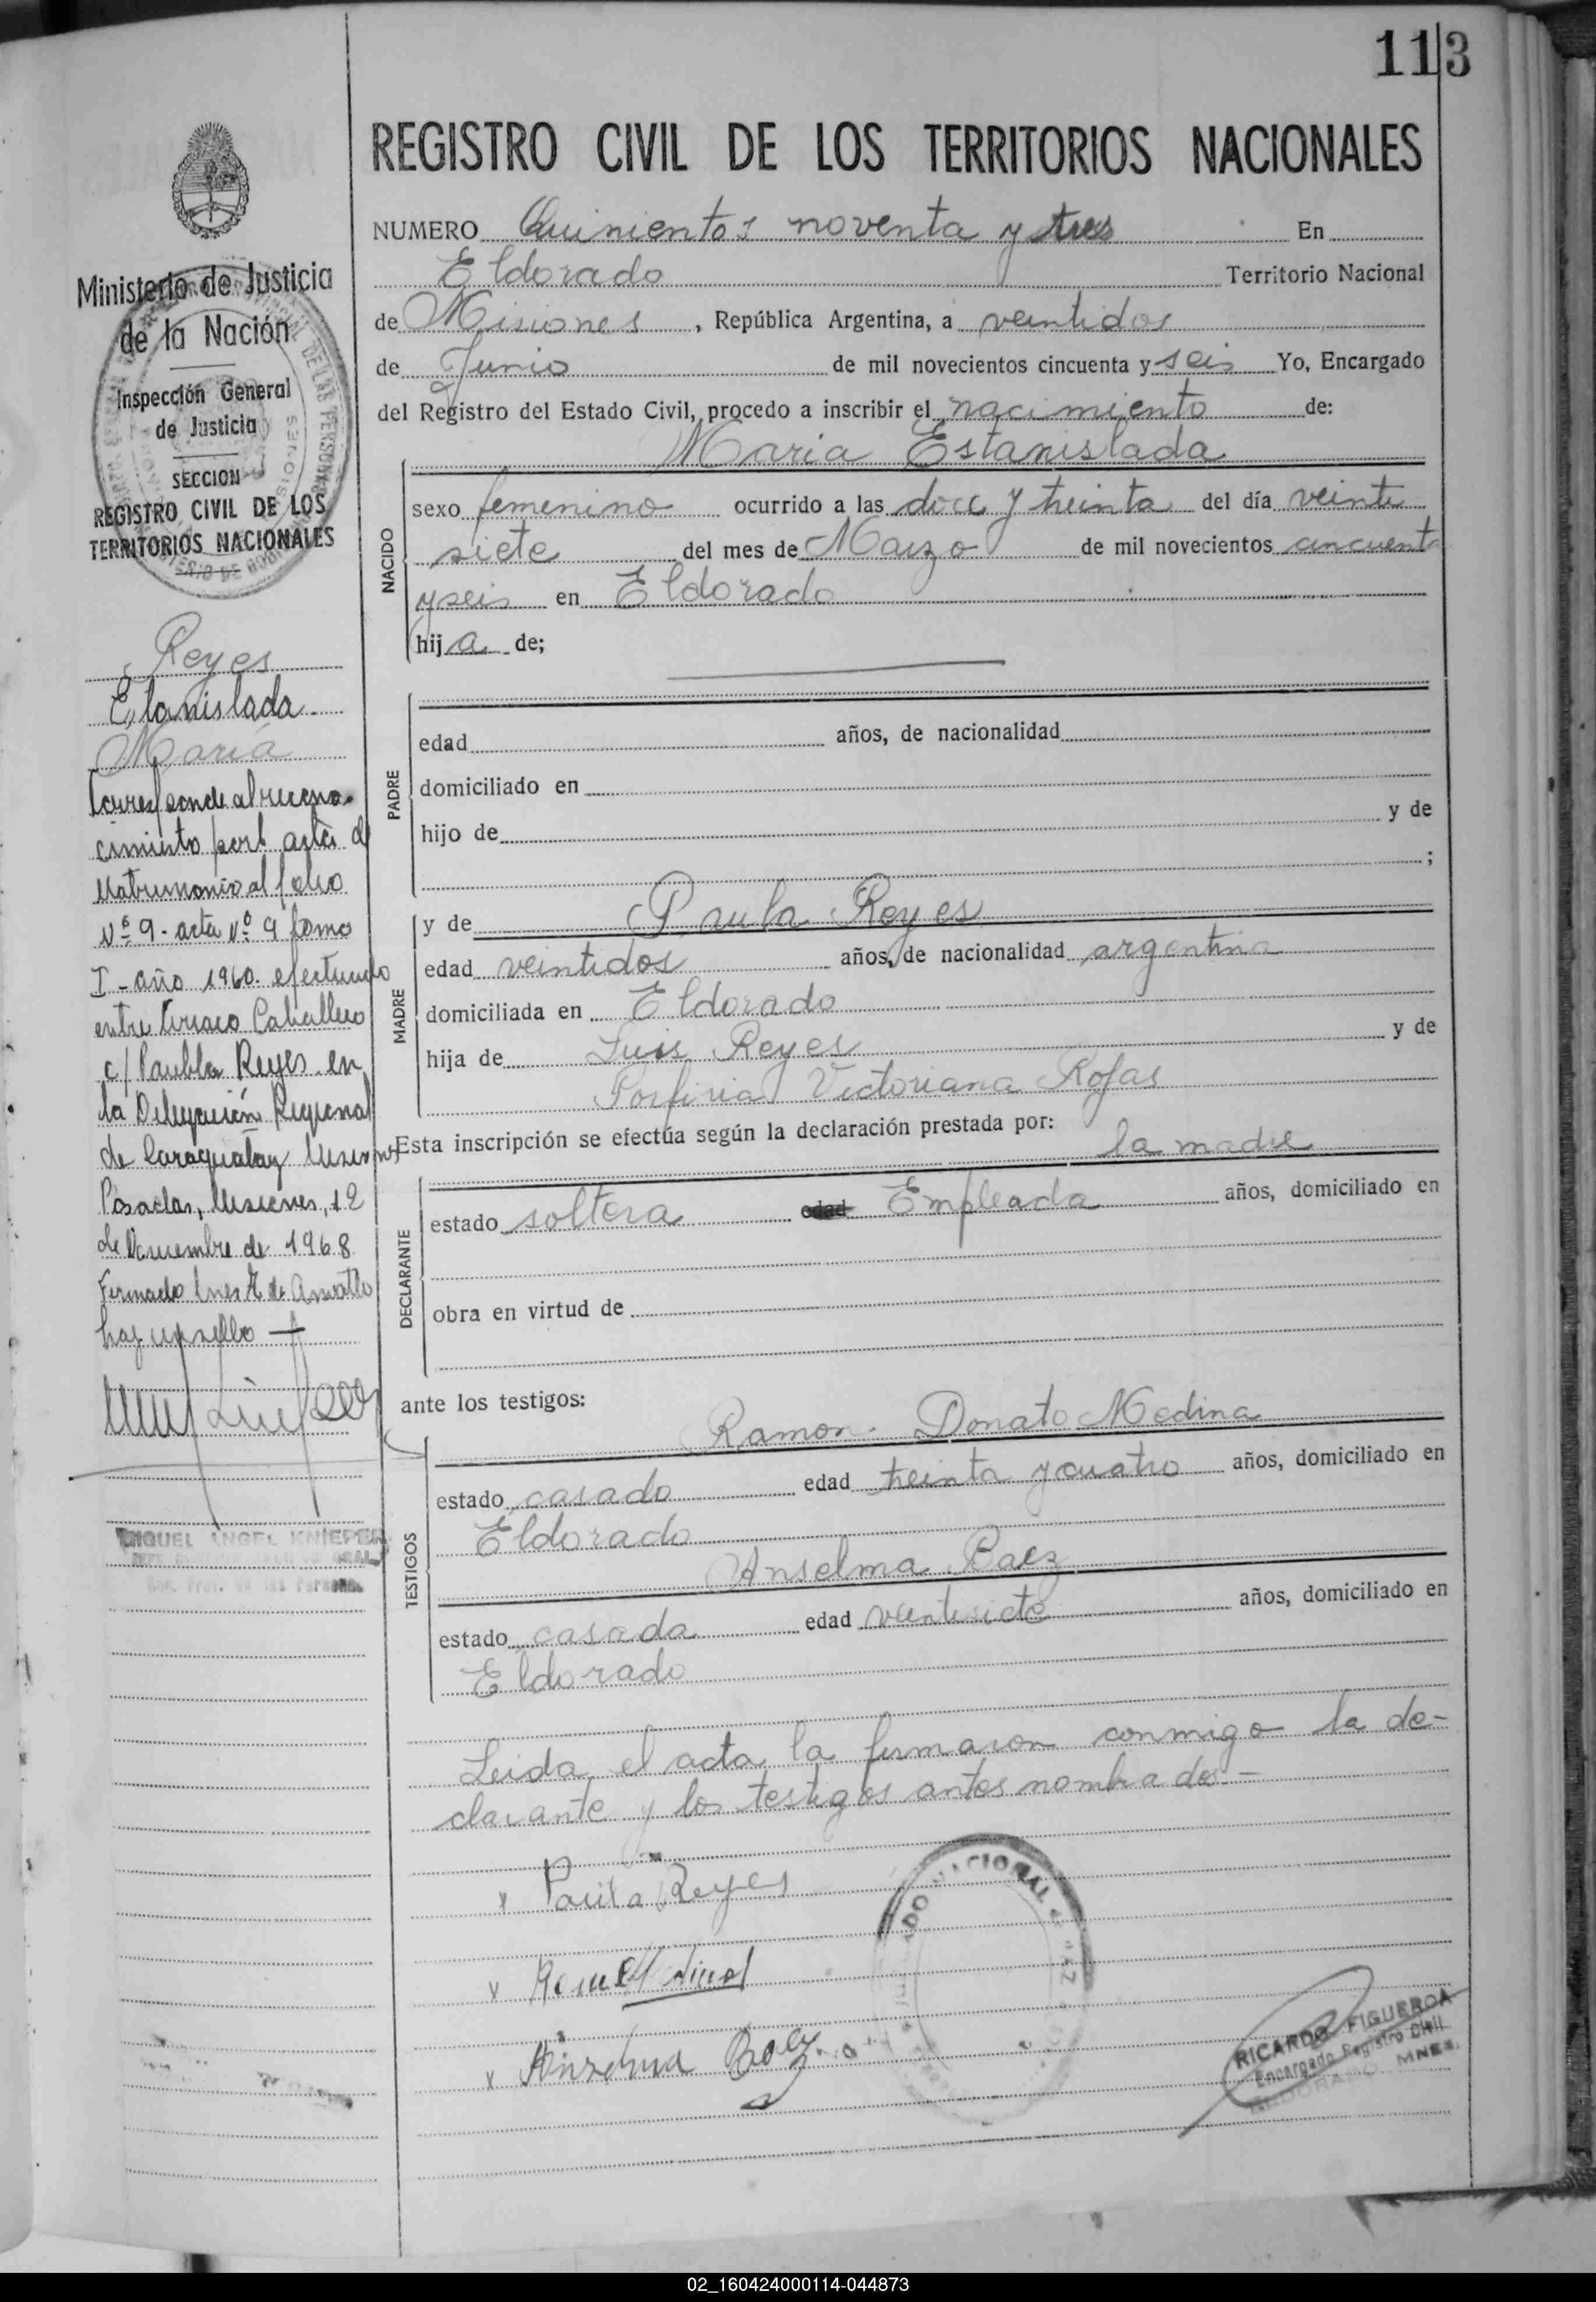 113
REGISTRO CIVIL DE LOS TERRITORIOS NACIONALES
NUMERO Quinientos noventa y tres En
Eldorado Territorio Nacional
de Misiones, República Argentina, a veintidos
de Junio de mil novecientos cincuenta y seis Yo, Encargado
del Registro del Estado Civil, procedo a inscribir el nacimiento de:
Maria Estanislada
NACIDO
sexo femenino ocurrido a las doce y treinta del día veinti
siete del mes de Marzo de mil novecientos cincuenta
y seis en Eldorado
hija de;
PADRE
edad años, de nacionalidad
domiciliado en
hijo de y de
;
MADRE
y de Paula Reyes
edad veintidos años, de nacionalidad argentina
domiciliada en Eldorado
hija de Luis Reyes y de
Porfiria Victoriana Rojas
Esta inscripción se efectúa según la declaración prestada por: la madre
DECLARANTE
estado soltera edad Empleada años, domiciliado en
obra en virtud de
ante los testigos:
Ramon Donato Medina
TESTIGOS
estado casado edad treinta y cuatro años, domiciliado en
Eldorado
Anselma Baez
estado casada edad veintisiete años, domiciliado en
Eldorado
Leida el acta la firmaron conmigo la de-
clarante y los testigos antes nombrados.-
x Paula Reyes
x
x Anselma Baez
RICARDO FIGUEROA
Encargado Registro Civil
ELDORADO MNES.
Ministerio de Justicia
de la Nación
Inspección General
de Justicia
SECCION
REGISTRO CIVIL DE LOS
TERRITORIOS NACIONALES
Reyes
Estanislada
María
Corresponde al recono-
cimiento por acta de
Matrimonio al folio
Nº 9 - acta Nº 9 tomo
I - año 1960. efectuado
entre Ciriaco Caballero
c/ Paubla Reyes en
la Delegación Regional
de Caraguatay Misiones
Posadas, Misiones, 12
de Diciembre de 1968
Firmado Ines M. de
hay un sello
MIGUEL ANGEL KNIEPER
02_160424000114-044873